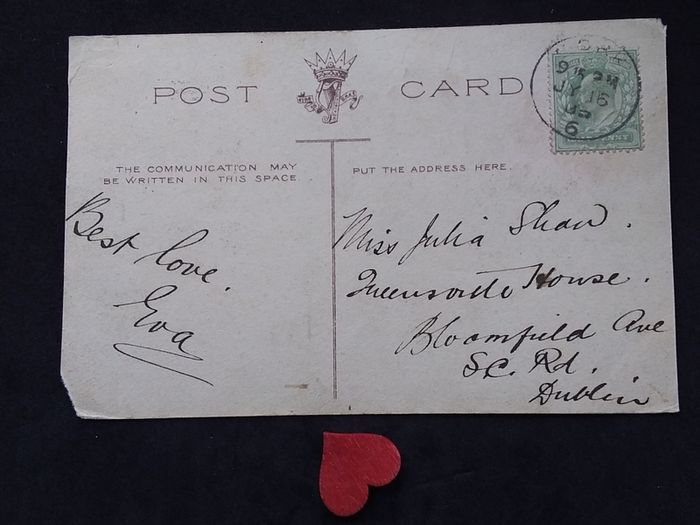 POST CARD
THE COMMUNICATION MAY
BE WRITTEN IN THIS SPACE.
PUT THE ADDRESS HERE.
Best love.
Eva
Miss Julia Shaw.
House.
Bloomfield Ave
S.C. Rd.
Dublin
JY 16